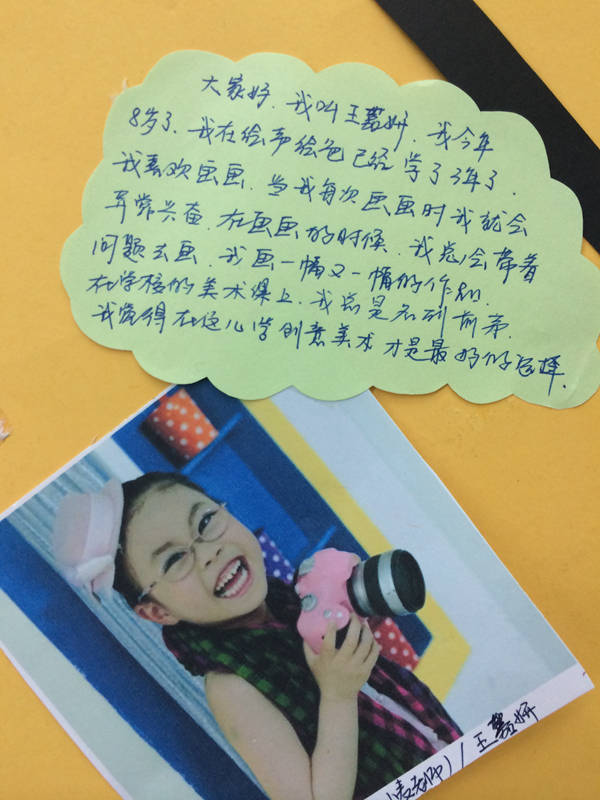 大家好，我叫王馨妍，我今年
8岁了，我在绘声绘色已经学了3年了，
我喜欢画画，当我每次画画时我就会
异常兴奋，在画画的时候，我总会带着
问题去画，我画一幅又一幅的作品，
在学校的美术课上，我总是名列前茅，
我觉得在这儿学创意美术才是最好的选择，
老师）/ 王馨妍